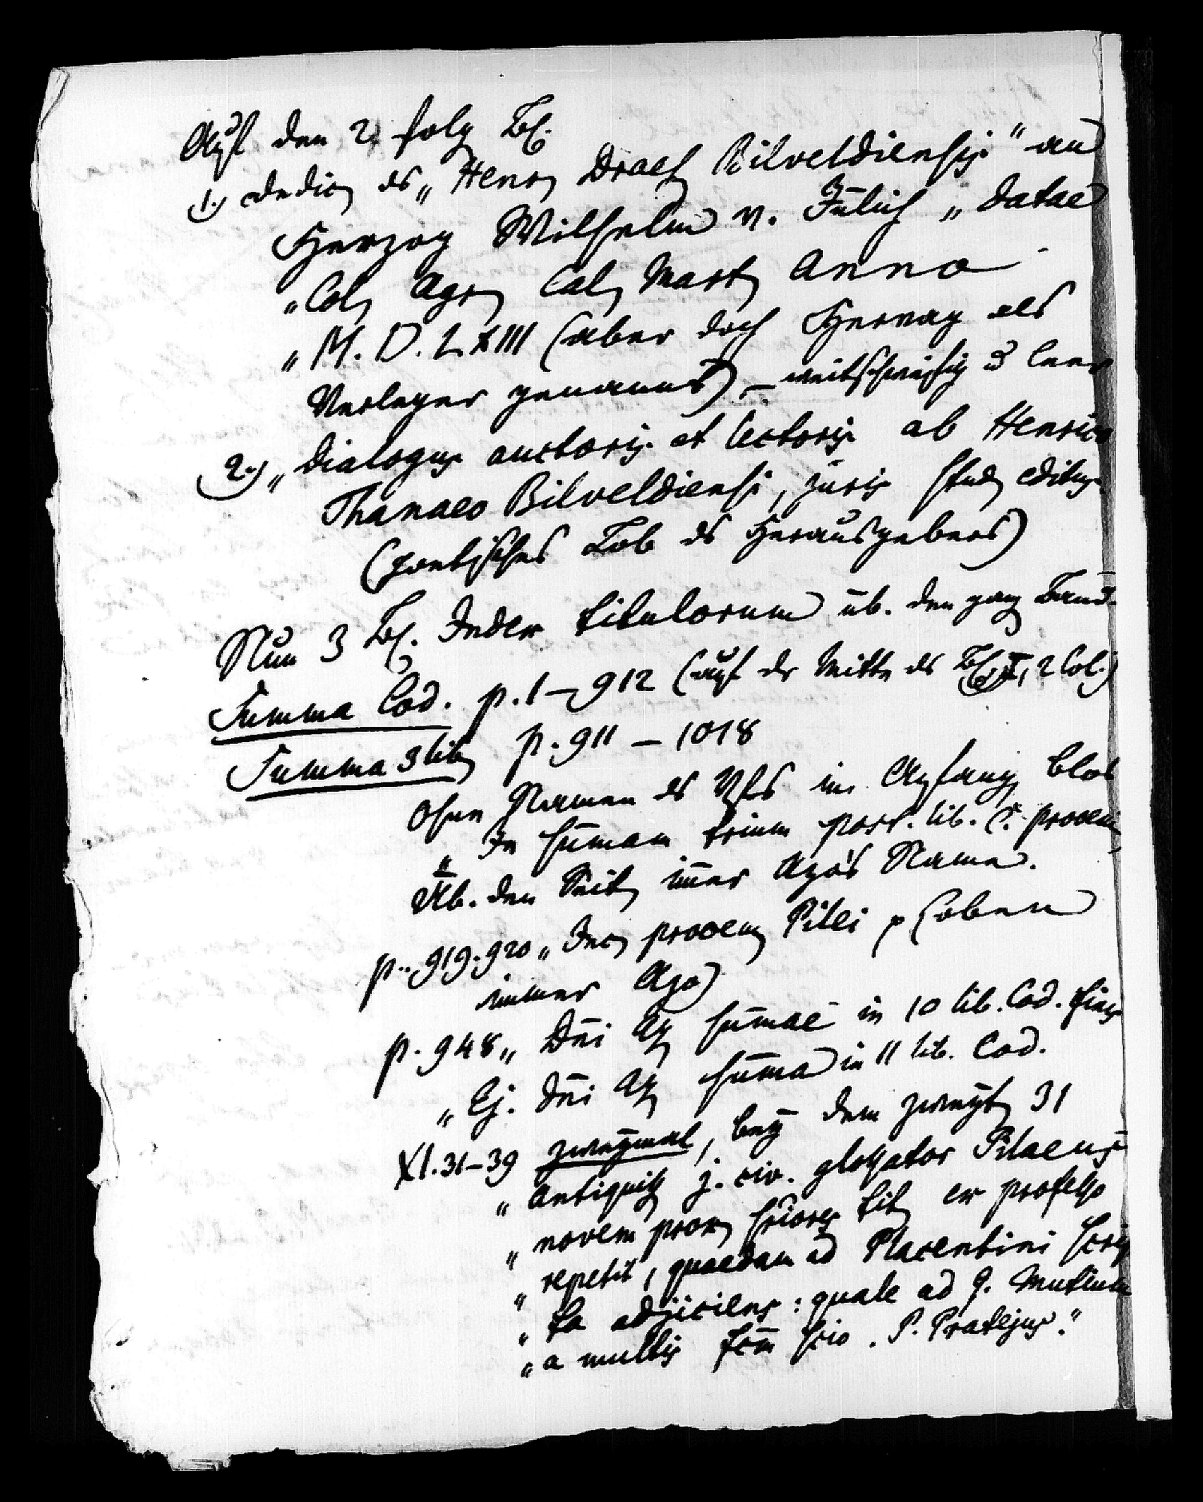 Auf den 2 folg Bl.
1.) Dedic des „Henr Draef Bilveldiensis“ an
Herzog Wilhelm v. Jülich „datae
„Col Agr Cal Mart anno
„M.D.LXIII (aber doch Hervag als
Verleger genannt) – weitschweifig u leer
2.) „Dialogus auctoris et lectoris ab Henrico
Thanaeo Bilveldiensi, juris stud editus
(poetisches Lob ds Herausgebers)
Nun 3 Bl. Index titulorum üb. den ganz Band.
Summa Cod. p. 1–912 (auf dr Mitte ds Bl., 2 Col.)
Summa 3 lib p. 911–1018
ohne Namen ds Vfs im Anfang blos
„In sumam trium post. lib. C. prooem
Üb. den Seit imer Azo's Name.
p. 919. 920 „Inc prooem Pilei (oben
immer Azo)
p. 948 „Dni Az sumae in 10 lib. Cod. finis
„Ej. dni Az suma in 11 lib. Cod.
XI. 31–39 zweymal, bey dem zweyt 31
„Antiquis j. civ. glossator Pilaeus
„novem prox suiores tit ex professo
„repetit, quaedam ad Placentini scrip
„ta adjiciens: quale ad Q. Mutium
„a multis fcm scio. P. Pratejus.“